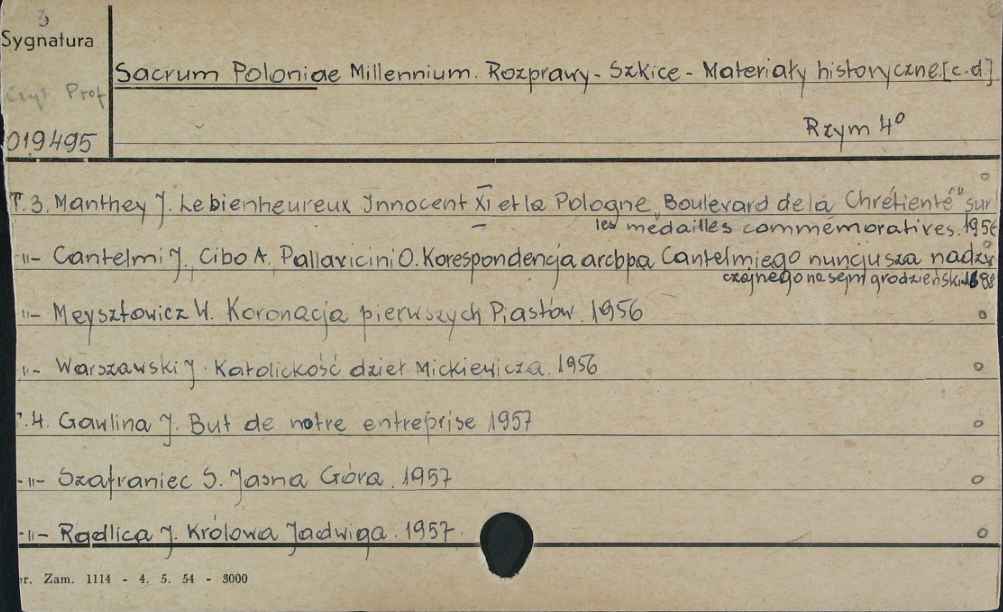 3
Sygnatura
Sacrum Poloniae Millennium. Rozprawy - Szkice - Materiały historyczne [c.d]
Czyt Prof
019495
Rzym 4°
T.3. Manthey J. Le bienheureux Innocent XI et la Pologne „Boulevard de la Chrétienté" sur
les médailles commémoratives. 1956
-"- Cantelmi J., Cibo A., Pallavicini O. Korespondencja arcbpa Cantelmiego nuncjusza nadzw
czajnego na sejm grodzieński
-"- Meysztowicz W. Koronacja pierwszych Piastów. 1956
-"- Warszawski J. Katolickość dzieł Mickiewicza. 1956
T.4. Gawlina J. But de notre entreprise 1957
-"- Szafraniec S. Jasna Góra. 1957
-"- Radlica J. Królowa Jadwiga. 1957.
r. Zam. 1114 - 4. 5. 54 - 3000